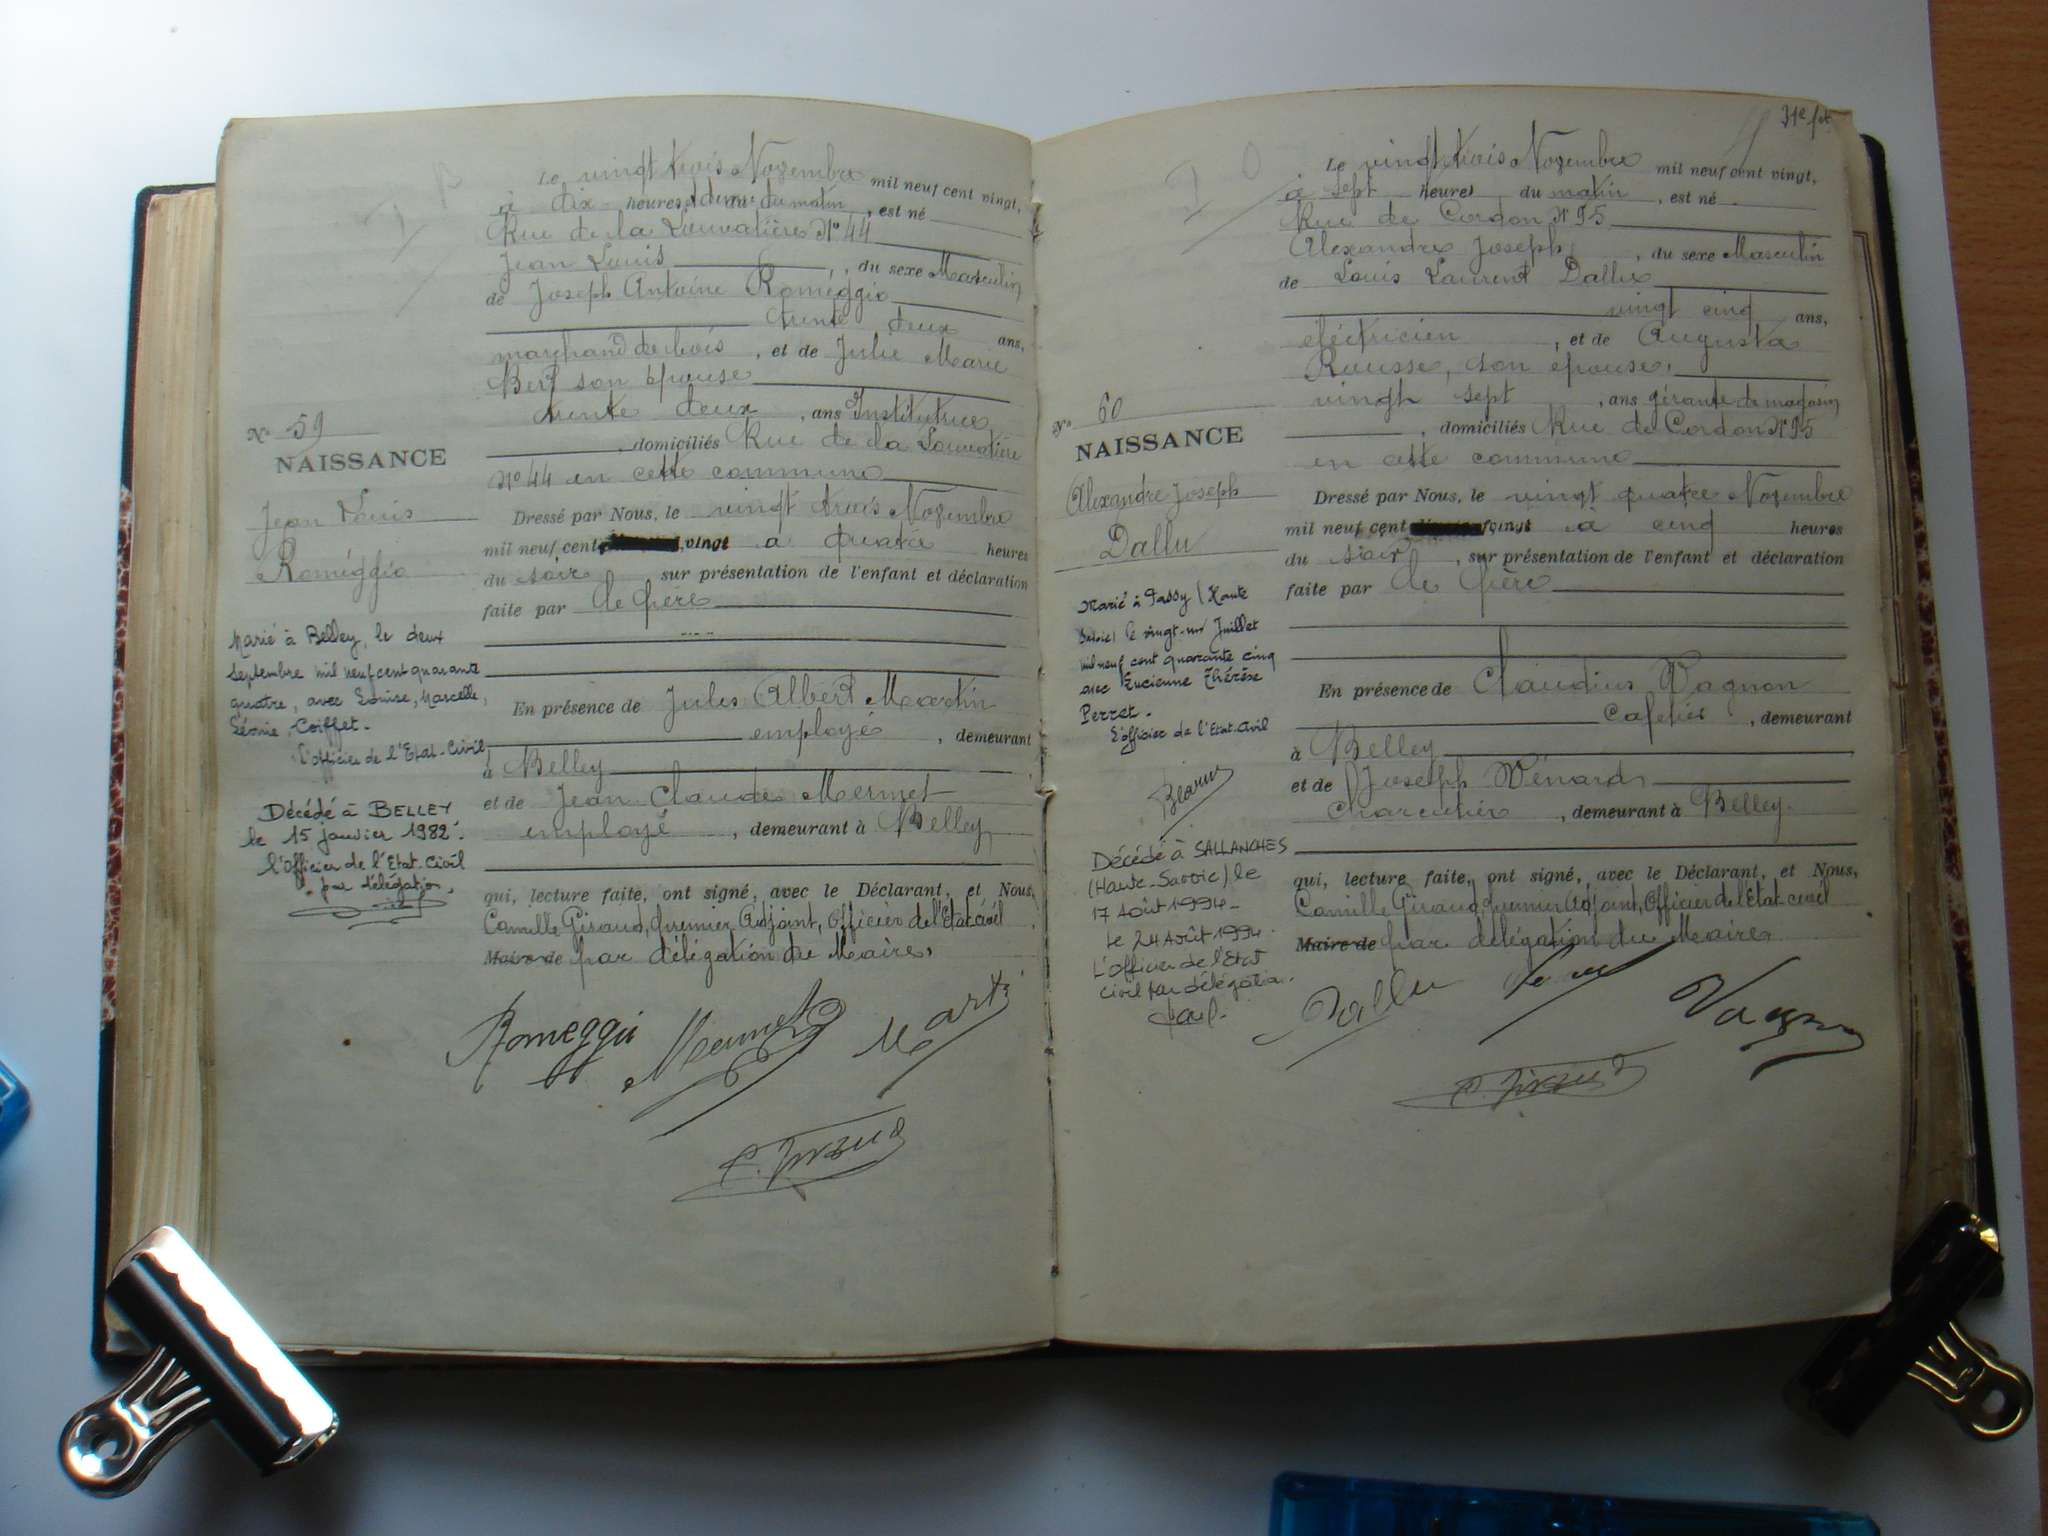 Le vingt trois Novembre mil neuf cent vingt,
à dix heures et demie du matin, est né
Rue de la Louvatière N° 44
Jean Louis, du sexe Masculin
de Joseph Antoine Roméggio
trente deux ans,
marchand de bois, et de Julie Marie
Bert son épouse
trente deux, ans Institutrice
, domiciliés Rue de la Louvatière
N° 44 en cette commune
N° 59
NAISSANCE
Jean Louis
Roméggio
Dressé par Nous, le vingt trois Novembre
mil neuf cent vingt à quatre heures
du soir sur présentation de l'enfant et déclaration
faite par le père
Marié à Belley, le deux
septembre mil neuf cent quarante
quatre, avec Louise, Marcelle,
Léonie, Coiffet.
L'officier de l'Etat-Civil
Décédé à BELLEY
le 15 janvier 1982.
l'Officier de l'Etat-Civil
par délégation,
En présence de Jules Albert Martin
employé, demeurant
à Belley
et de Jean Claude Mermet
employé, demeurant à Belley
qui, lecture faite, ont signé, avec le Déclarant, et Nous,
Camille Giraud, premier Adjoint, Officier de l'Etat-civil
Maire de par délégation du Maire,
Romeggio Mermet Martin
C. Giraud
31e fet
Le vingt trois Novembre mil neuf cent vingt,
à sept heures du matin, est né
Rue de Cordon N° 95
Alexandre Joseph, du sexe Masculin
de Louis Laurent Dallu
vingt cinq ans,
électricien, et de Augusta
Rousse, son épouse,
vingt sept, ans gérante de magasin
, domiciliés Rue de Cordon N° 95
en cette commune
N° 60
NAISSANCE
Alexandre Joseph
Dallu
Dressé par Nous, le vingt quatre Novembre
mil neuf cent vingt à cinq heures
du soir, sur présentation de l'enfant et déclaration
faite par le père
Marié à Passy (Haute
Savoie) le vingt-un Juillet
mil neuf cent quarante cinq
avec Lucienne Thérèse
Perret.
L'officier de l'Etat-Civil
Décédé à SALLANCHES
(Haute-Savoie) le
17 Août 1994-
Le 24 Août 1994.
L'Officier de l'Etat
Civil par délégation.
En présence de Claudius Vagnon
Cafetier, demeurant
à Belley
et de Joseph Vénard
Charcutier, demeurant à Belley.
qui, lecture faite, ont signé, avec le Déclarant, et Nous,
Camille Giraud, premier Adjoint, Officier de l'Etat-civil
Maire de par délégation du Maire,
Dallu Vagnon
C. Giraud